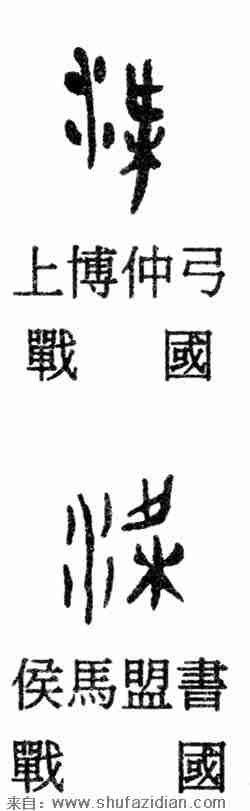 上博仲弓
戰國
侯馬盟書
戰國
来自：www.shufazidian.com